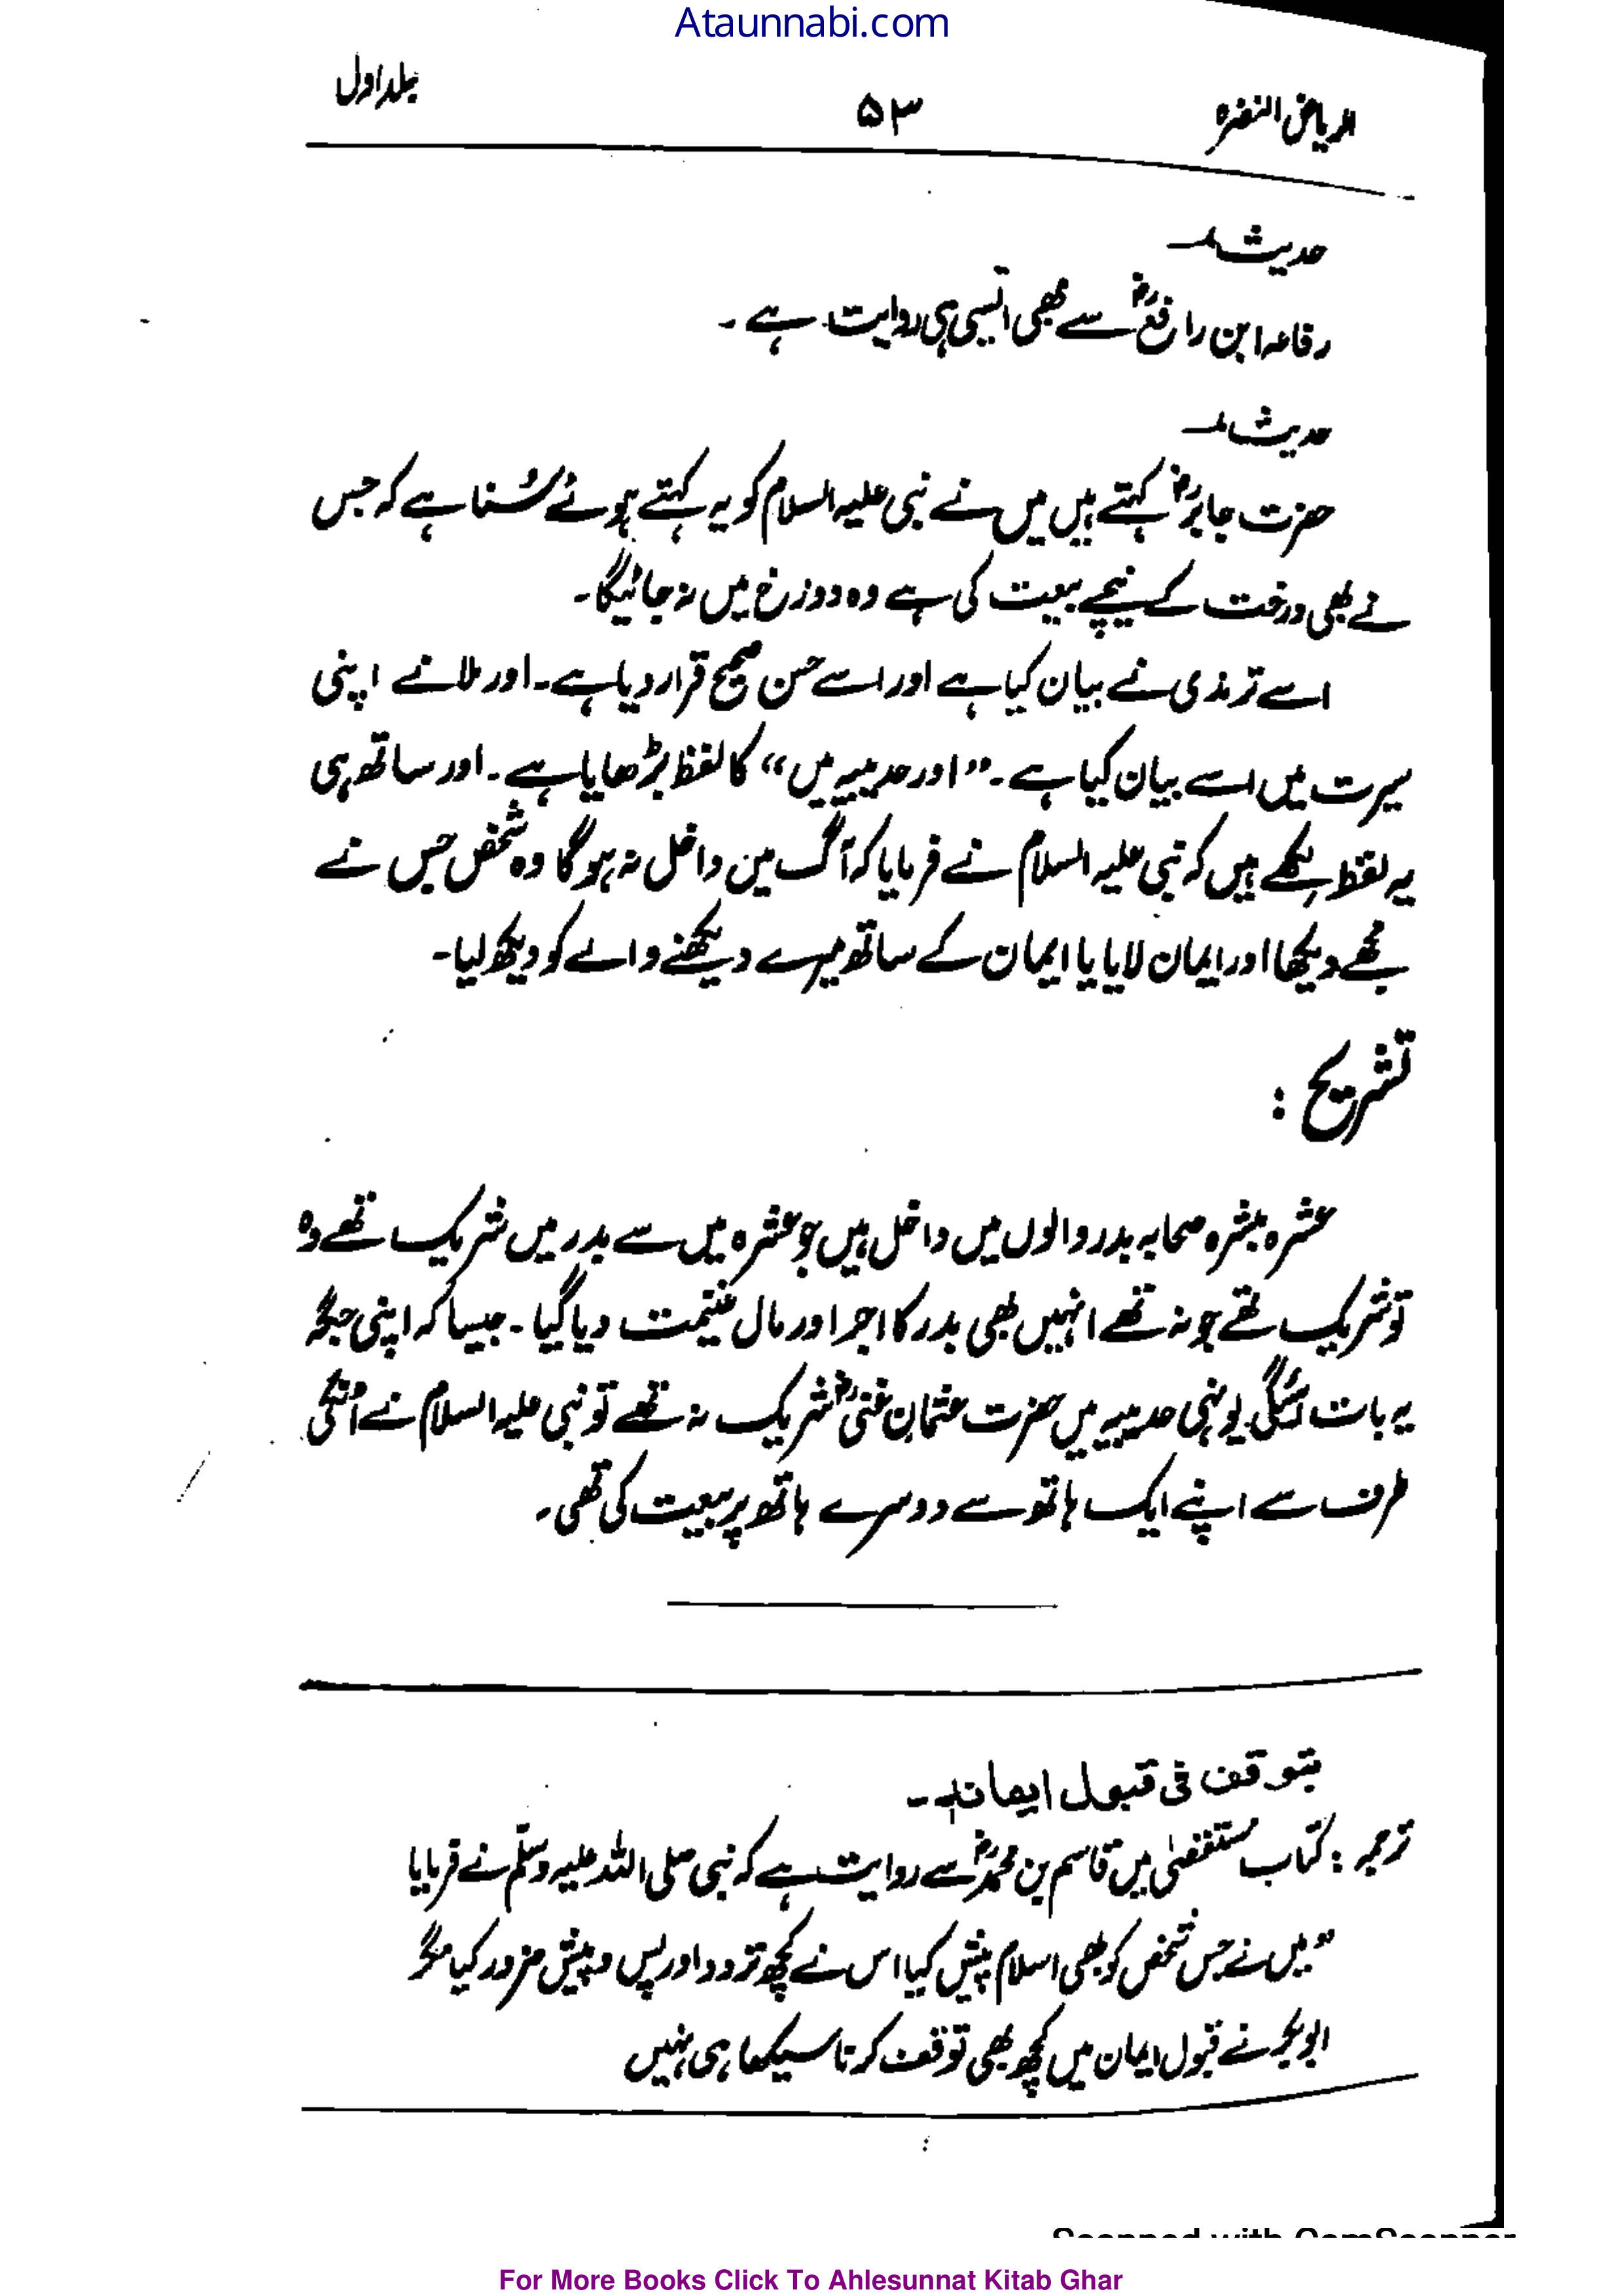 Ataunnabi.com
الریاض النضرہ ۵۳ جلد اول
حدیث
رفاعہ ابن رافعؓ سے بھی ایسی ہی روایت ہے۔
حدیث
حضرت جابرؓ کہتے ہیں میں نے نبی علیہ السلام کو یہ کہتے ہوئے سُنا ہے کہ جس
نے بھی درخت کے نیچے بیعت کی ہے وہ دوزخ میں نہ جائیگا۔
اسے ترمذی نے بیان کیا ہے اور اسے حسن صحیح قرار دیا ہے۔ اور ملا نے اپنی
سیرت میں اسے بیان کیا ہے۔ ”اور حدیبیہ میں“ کا لفظ بڑھایا ہے۔ اور ساتھ ہی
یہ لفظ لکھے ہیں کہ نبی علیہ السلام نے فرمایا کہ آگ میں داخل نہ ہوگا وہ شخص جس نے
مجھے دیکھا اور ایمان لایا یا ایمان کے ساتھ میرے دیکھنے والے کو دیکھ لیا۔
تشریح :
عشرہ مبشرہ صحابہ بدر والوں میں داخل ہیں جو عشرہ میں سے بدر میں شریک تھے وہ
تو شریک تھے جو نہ تھے انہیں بھی بدر کا اجر اور مال غنیمت دیا گیا۔ جیسا کہ اپنی جگہ
یہ بات آئیگی۔ یونہی حدیبیہ میں حضرت عثمان غنیؓ شریک نہ تھے تو نبی علیہ السلام نے انکی
طرف سے اپنے ایک ہاتھ سے دوسرے ہاتھ پر بیعت کی تھی۔
یتوقف فی قبول ایمانہ۔
ترجمہ : کتاب مستقصیٰ میں قاسم بن محمدؓ سے روایت ہے کہ نبی صلی اللہ علیہ وسلم نے فرمایا
”میں نے جس شخص کو بھی اسلام پیش کیا اس نے کچھ تردد اور پس و پیش ضرور کیا مگر
ابوبکر نے قبول ایمان میں کچھ بھی توقف کرنا سیکھا ہی نہیں
Scanned with CamScanner
For More Books Click To Ahlesunnat Kitab Ghar